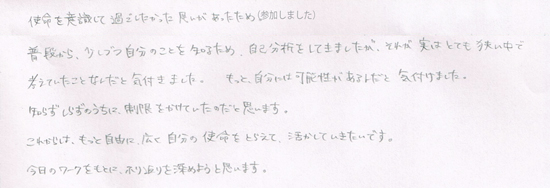 使命を意識して過ごしたかった思いがあったため(参加しました)
普段から、少しづつ自分のことを知るため、自己分析をしてきましたが、それが実はとても狭い中で
考えていたことなんだと気付きました。 もっと、自分には可能性があるんだと気付けました。
知らずしらずのうちに、制限をかけていたのだと思います。
これからは、もっと自由に、広く自分の使命をとらえて、活かしていきたいです。
今日のワークをもとに、ふり返りを深めようと思います。